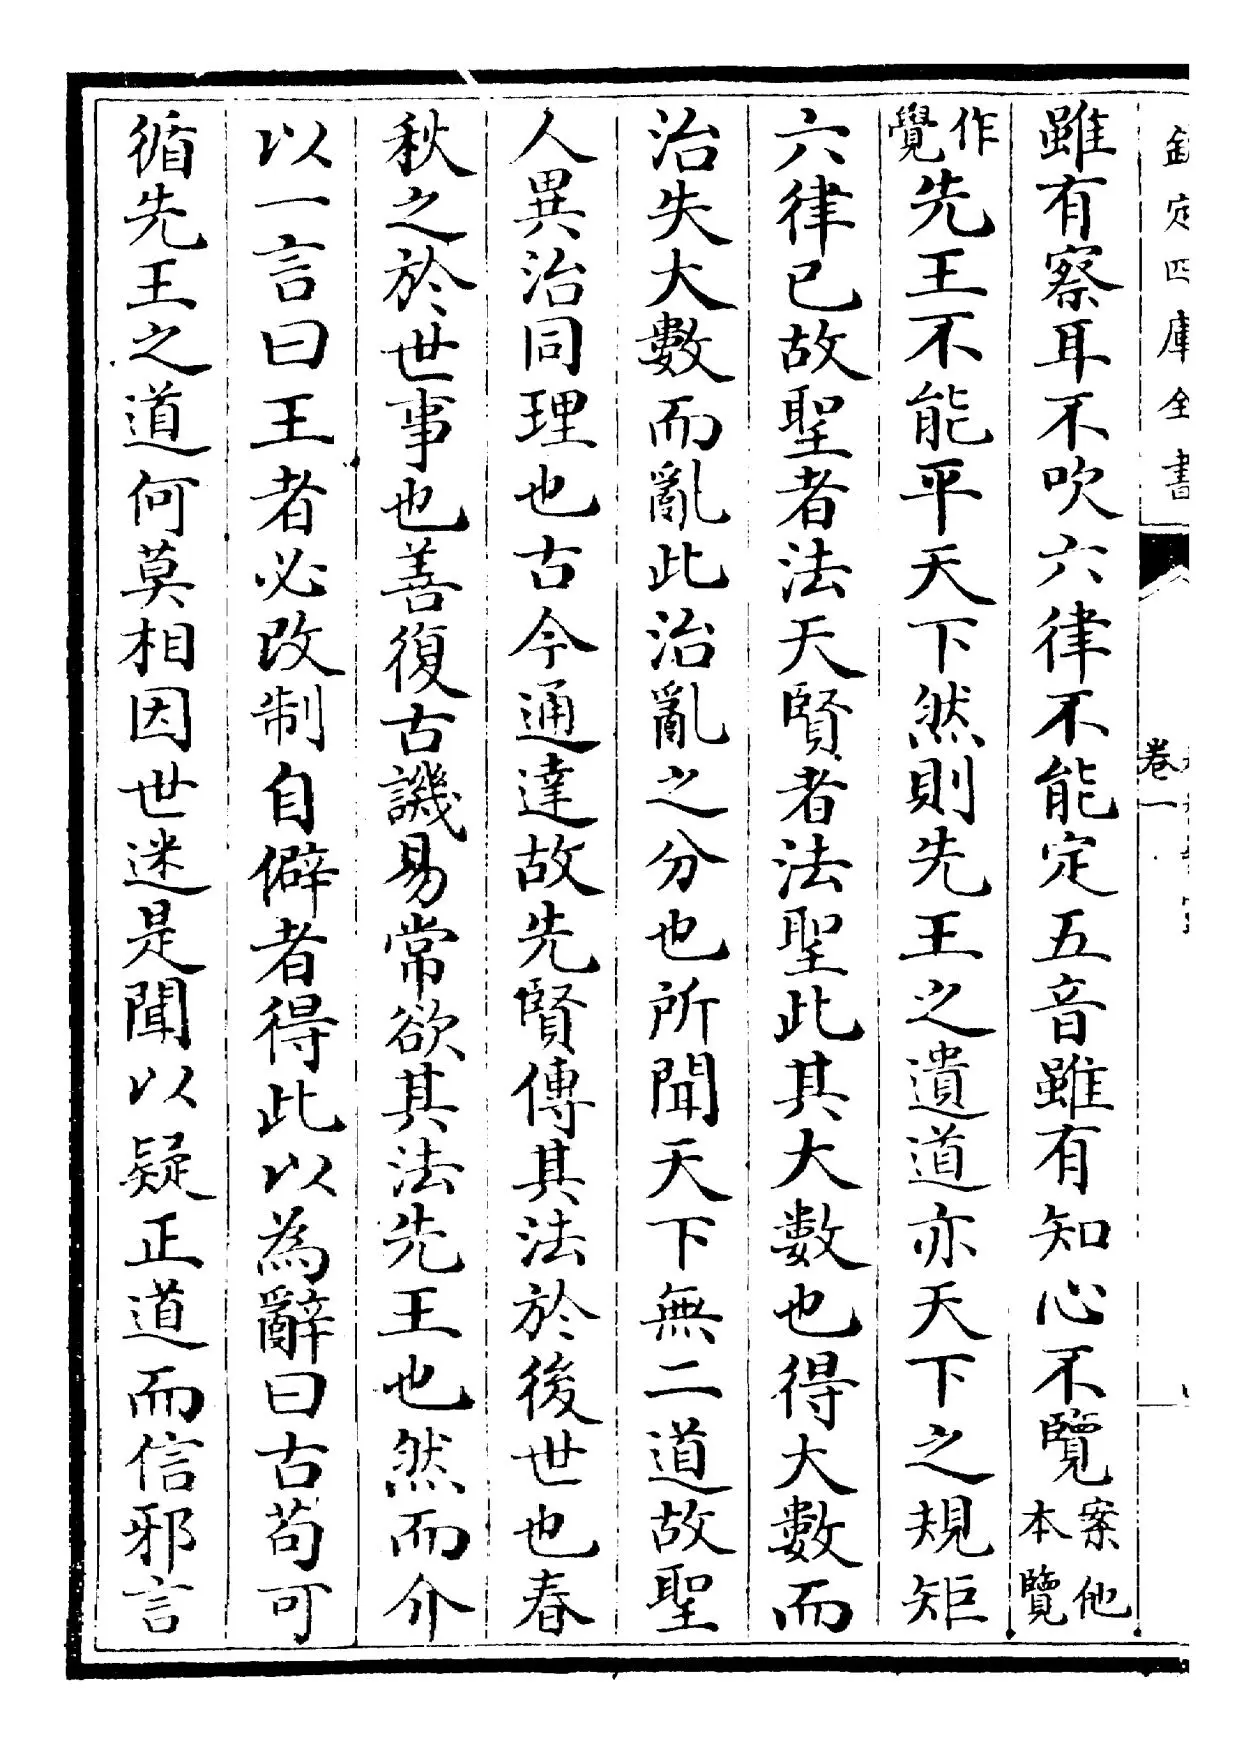 欽定四庫全書
卷一
雖有察耳不吹六律不能定五音雖有知心不覽案他本覽
作覺先王不能平天下然則先王之遺道亦天下之規矩
六律已故聖者法天賢者法聖此其大數也得大數而
治失大數而亂此治亂之分也所聞天下無二道故聖
人異治同理也古今通達故先賢傳其法於後世也春
秋之於世事也善復古譏易常欲其法先王也然而介
以一言曰王者必改制自僻者得此以為辭曰古苟可
循先王之道何莫相因世迷是聞以疑正道而信邪言